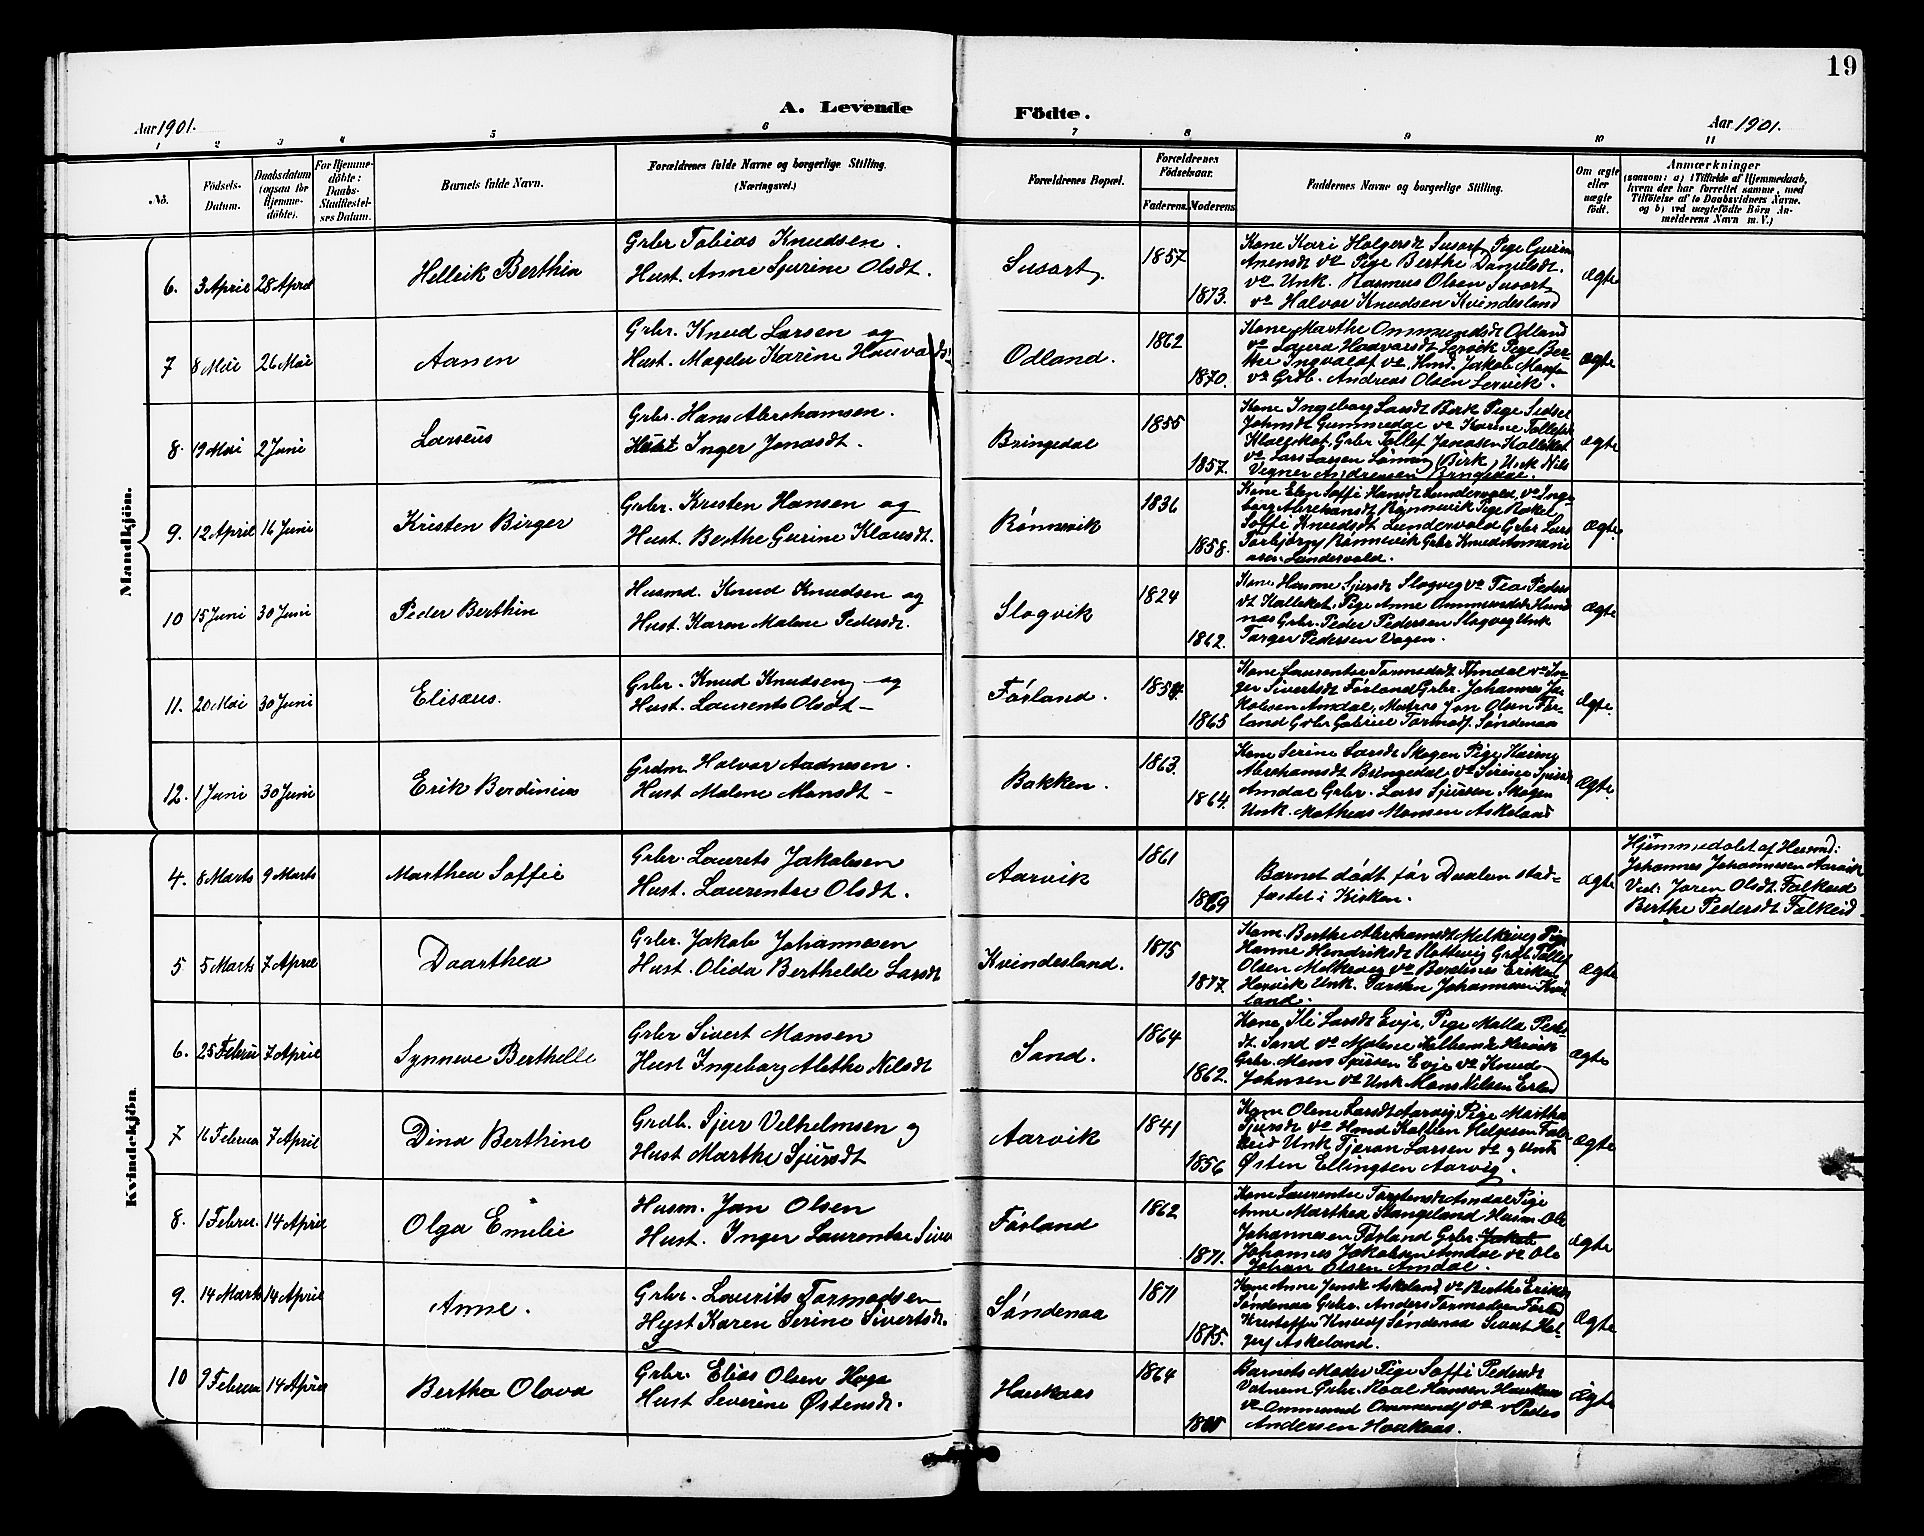 19
A. Levende Födte.
Aar 1901.
Aar 1901.
1 2 3 4 5 6 7 8 9 10 11
No.
Födsels-Datum.
Daabsdatum (ogsaa for Hjemme-döbte).
For Hjemme-döbte: Daabs-Stadfæstel-ses Datum.
Barnets fulde Navn.
Forældrenes fulde Navne og borgerlige Stilling. (Næringsvei.)
Forældrenes Bopæl.
Forældrenes Födselsaar.
Faderens. Moderens.
Faddernes Navne og borgerlige Stilling.
Om ægte eller uægte født.
Anmærkninger
(saasom: a) i Tilfælde af Hjemmedaab, hvem der har forrettet samme, med Tilföielse af to Daabsvidners Navne. og b) ved uægtefödte Börn An-melderens Navn m. V.)
Mandkjön.
6. 3 April 28 April
Hellvik Berthin
Grbr Tobias Knudsen.
Hust. Anne Sjurine Olsdt.
Susort
1857
1873.
Kone Kari Holgersdt Susort Pige Gurine
Anensdt vo Pige Berthe Danielsdt.
vo Unk. Rasmus Olsen Susort
vo Halvor Knudsen Kvindesland
ægte
7 8 Mai 26 Mai
Aanen
Grbr. Knud Larsen og
Hust. Magda Karine Haavardsdt
Odland.
1862
1870.
Kone Marthe Ommundsdt Odland
vo Haavarsdt Lervik Pige Ber-
the Ingvaldsf vo. Hmd. Jakob
vo Grdb. Andreas Olsen Lervik.
ægte
8. 19 Mai 2 Juni
Larseus
Grbr. Hans Abrahamsen.
Hust Inger Jonasdt.
Bringedal
1855
1857.
Kone Ingeborg Larsdt Birk Pige Sidsel
Johnsdt Gummedal vo Karine Tollefsdt
Kallekot Grbr Tollef Jonasen Kallekot
vo Lars Larsen Birk, Unk Nils
Vegner Andreasen Bringedal.
ægte
9. 12 April 16 Juni
Kristen Birger
Grbr. Kristen Hansen og
Hust. Berthe Gurine Klausdt.
Rønnevik
1836
1858.
Kone Elen Soffi Hansdt Lundervold, vo Inge-
borg Abrahamsdt Rønnevik Pige Rakel
Soffi Knudsdt Lundervold Grbr Lars
Torbjørn Rønnevik Grbr Knud
Lundervold.
ægte
10 15 Juni 30 Juni
Peder Berthin
Husmd. Knud Knudsen og
Hust. Karen Malene Pedersdt.
Slogvik
1824
1862.
Kone Hanne Sjursdt Slogvig vo Tea Peders
dt Kallekot, Pige Anne Ommundsdt Hund
nas Grbr. Peder Pedersen Slogvig Unk
Torger Pedersen Vagen.
ægte
11. 20 Mai 30 Juni
Elisæus.
Grbr. Knud Knudsen og
Hust. Laurents Olsdt -
Førland.
1865
Kone Laurentse Tormodsdt Amdal vo In-
ger Sivertsdt Førland Grbr. Johannes Ja-
kobsen Amdal, Matros Jon Olsen Før-
land Grbr Gabriel Tormodsf. Søndenaa
ægte.
12. 1 Juni 30 Juni
Erik Berdinius
Grdm. Halvor Aadnesen.
Hust Malene Monsdt -
Bakken.
1863.
1864.
Kone Serine Larsdt Skogen Pige
Abrahamsdt Bringedal vo Serine Sjursdt
Amdal Grbr. Lars Sjursen Skogen
Unk. Mathias Monsen Askeland
ægte.
Kvindekjön
4. 8 Marts 9 Marts
Marthea Soffie
Grbr. Laurits Jakobsen
Hust. Laurentse Olsdt.
Aarvik
1861
1869
Barnet dødt før Daaben stad-
fæstet i Kirken.
ægte
Hjemmedøbt af Husmd:
Johannes Johannesen Aarvik
Ved: Joren Olsdt Falkeid
Berthe Pedersdt Falkeid
5 5 Marts 7 April
Daarthea
Grbr. Jakob Johannesen
Hust. Olida Berthilde Larsdt
Kvindesland.
1875
1877.
Kone. Berthe Abrahamsdt Melkevig Pige
Hanne Hendriksdt Hattevig Grdb. Tollef
Olsen Melkevig vo Berdines Eriksen
Hervik Unk. Torsten Johannesen Kvin
land.
ægte
6. 25 Febru 7 April
Synneve Berthelle
Grbr Sivert Monsen
Hust Ingeborg Alethe Nilsdt
Sand.
1864
1862.
Kone Ili Larsdt Evje, Pige Malla Peder
dt. Sand vo Malene Hervik
Grbr. Mons Sjursen Evje vo Knud
Johnsen vo Unk Mons Nilsen Erland
ægte
7 16 Februa 7 April
Dina Berthine
Grdb. Sjur Vilhelmsen og
Hust Marthe Sjursdt
Aarvik
1841
1856
Kone Olene Larsdt Aarvig Pige Martha
Sjursdt vo Hmd Helgesen Fal-
keid Unk Tjøran Larsen vo og Unk
Østen Ellingsen Aarvig.
ægte
8. 1 Februr. 14 April
Olga Emilie
Husm. Jon Olsen
Hust. Inger Laurentse Siver
Førland
1862
1871.
Kone Laurentse Torstensdt Amdal Pige
Anne Marthea Stangeland Husm. Ole
Johannesen Førland Grbr. Jakob
Johannes Jakobsen Amdal vo Ole
Johan Olsen Amdal.
ægte
9. 14 Marts 14 April
Anne.
Grbr. Laurits Tormodsen
Hust Karen Serine Sivertsdt.
Søndenaa
1871
1875.
Kone Anne Jensdt Askeland vo Berthe Eriksdt
Søndenaa Grbr. Anders Tormodsen Førland
Kristoffer Knudsf Søndenaa Sivert Hol-
gersf Askeland.
ægte
10 9 Februa 14 April
Bertha Olava
Grbr. Elias Olsen Haga
Hust Severine Østensdt.
Haukaas
1864
Barnets Moder Pige Soffi Pedersdt
Vatnem Grbr. Roal Hansen Haukaas
vo Ommund Ommundsf vo v Peder
Andersen Haukaas.
ægte